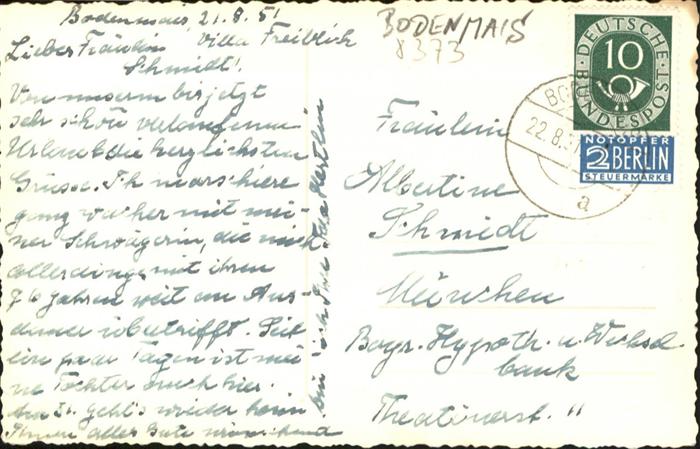 Bodenmais, 21.8.51
Villa Freiblich
Lieber Fräulein
Schmidt!
Von unserm bis jetzt
sehr schön verlaufenen
Urlaub die herzlichsten
Grüsse. Ich marschiere
ganz wacker mit mei-
ner Schwägerin, die mich
allerdings mit ihren
76 Jahren weit an Aus-
dauer übertrifft. Seit
ein paar Tagen ist mei-
ne Tochter auch hier.
Am geht's wieder heim
Ihnen alles Gute wünschend
bin ich Ihre
BODENMAIS
8373
DEUTSCHE BUNDESPOST
10
NOTOPFER
2 BERLIN
STEUERMARKE
22.8.5
a
Fräulein
Albertine
Schmidt
München
Bayr. Hypoth. u. Wechsel
bank
Theatinerst. 11